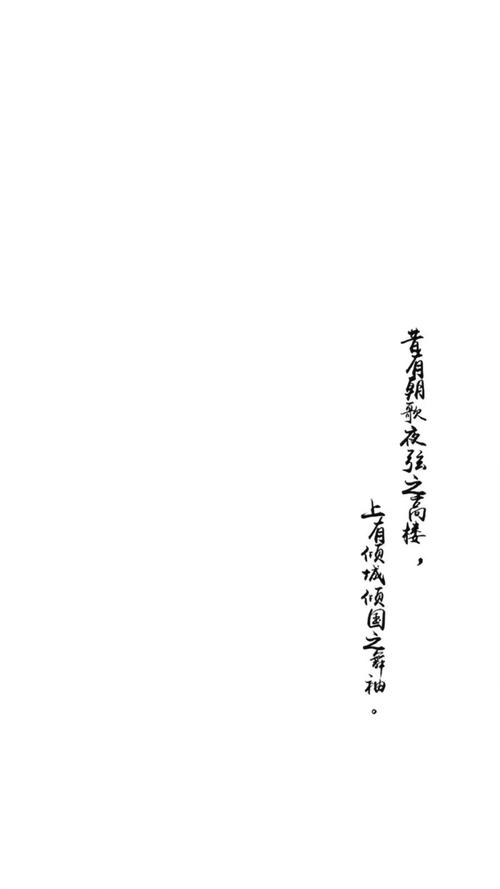 昔有朝歌夜弦之高楼，
上有倾城倾国之舞袖。